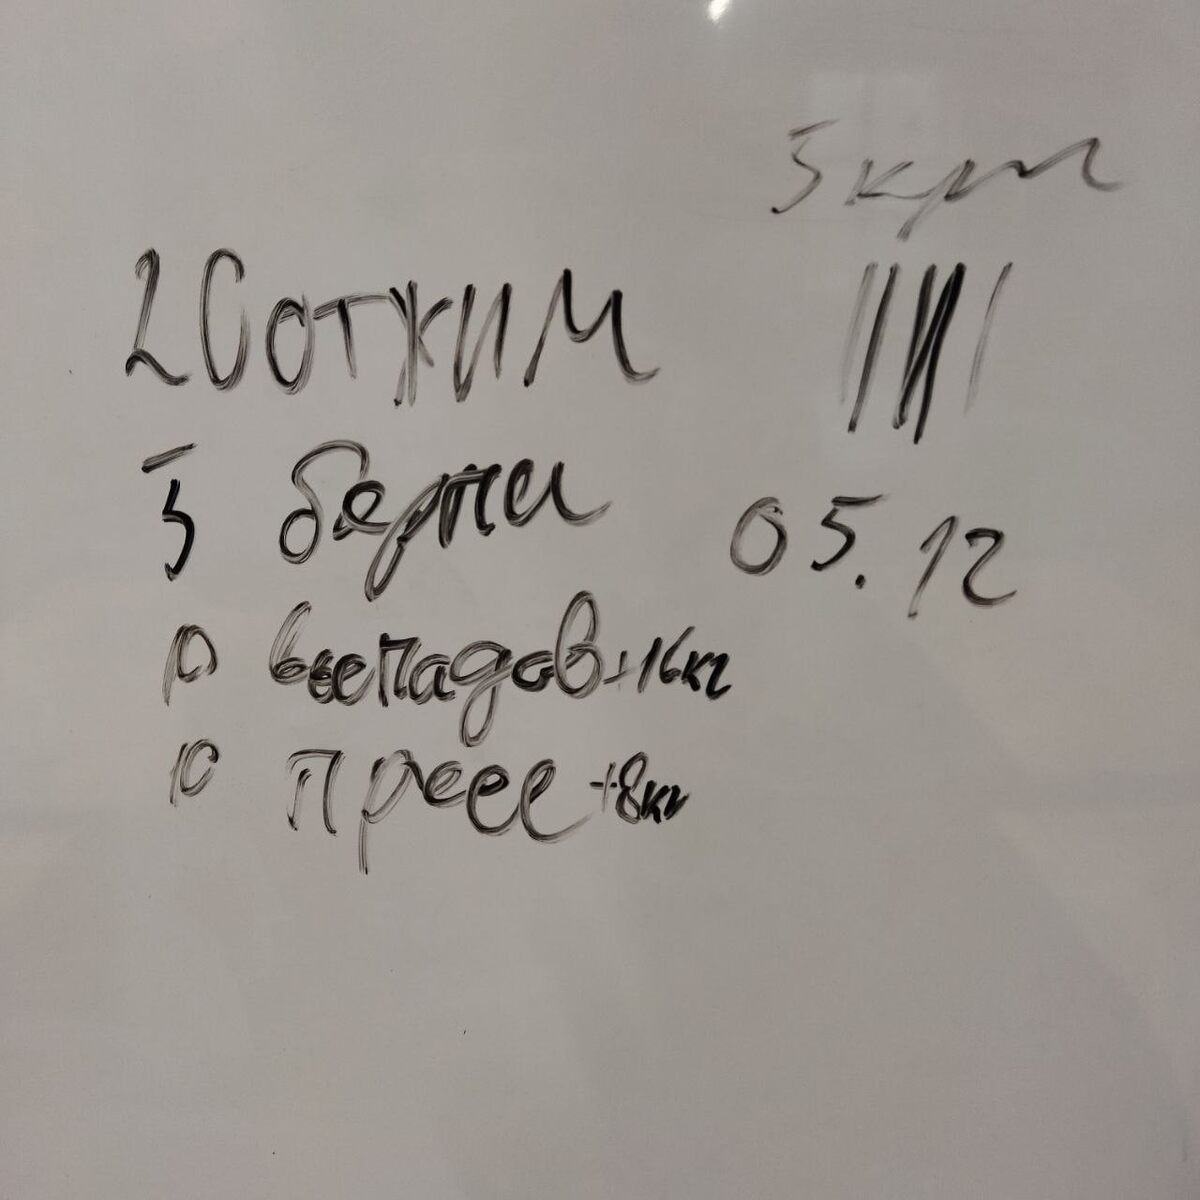 5 круг
20 отжим
5 берпи
10 выпадов +16кг
10 Пресс +8кг
05.12